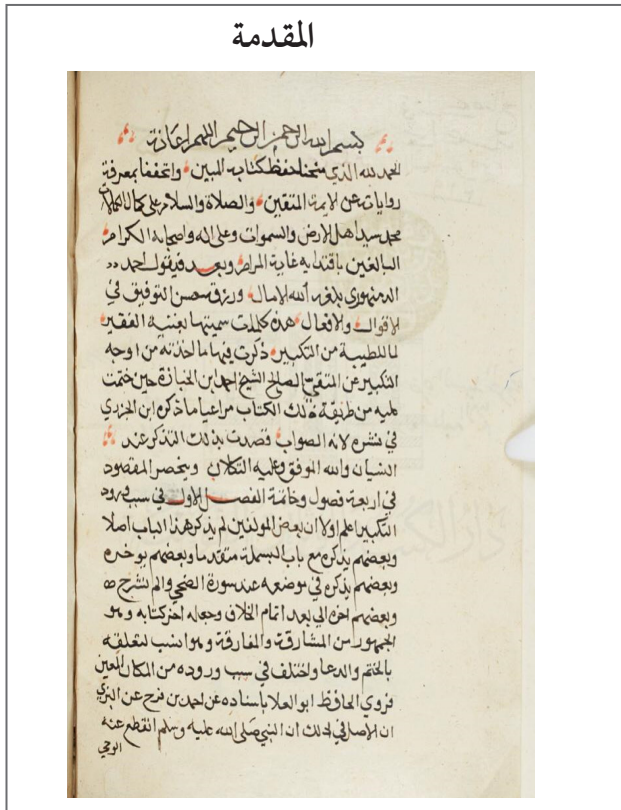 المقدمة
بسم الله الرحمن الرحيم اللهم اعانة
الحمد لله الذي منحنا حفظ كتابه المبين واتحفنا بمعرفة
رواياته عن الايمة المتقين والصلاة والسلام على
محمد سيد اهل الارض والسموات وعلى اله واصحابه الكرام
البالغين باقتدايه غاية المرام وبعد فيقول احمد
الدمنهوري بلغه الله الامال ورزقه حسن التوفيق في
الاقوال والافعال هذه كلمات سميتها بغنية الفقير
لما للطيبة من التكبير ذكرت فيها ما اخذته من اوجه
التكبير عن المتقن الصالح الشيخ احمد ابن الخبازة حين ختمت
عليه من طريقة ذلك الكتاب مراعيا ما ذكره ابن الجزري
في نشره لانه الصواب قصدت بذلك التذكر عند
النسيان والله الموفق وعليه التكلان وينحصر المقصود
في اربعة فصول وخاتمة الفصل الاول في سبب ورود
التكبير اعلم اولا ان بعض المولفين لم يذكر هذا الباب اصلا
وبعضهم يذكره مع باب البسملة متقدما وبعضهم يوخره
وبعضهم يذكره في موضعه عند سورة الضحى والم نشرح
وبعضهم اخره الى بعد اتمام الخلاف وجعله اخر كتابه وهو
الجمهور من المشارقة والمغاربة وهو انسب لتعلقه
بالختم والدعا واختلف في سبب وروده من المكان المعين
فروي الحافظ ابو العلا باسناده عن احمد بن فرح عن البزي
ان الاصل في ذلك ان النبي صلى الله عليه وسلم انقطع عنه
الوحي